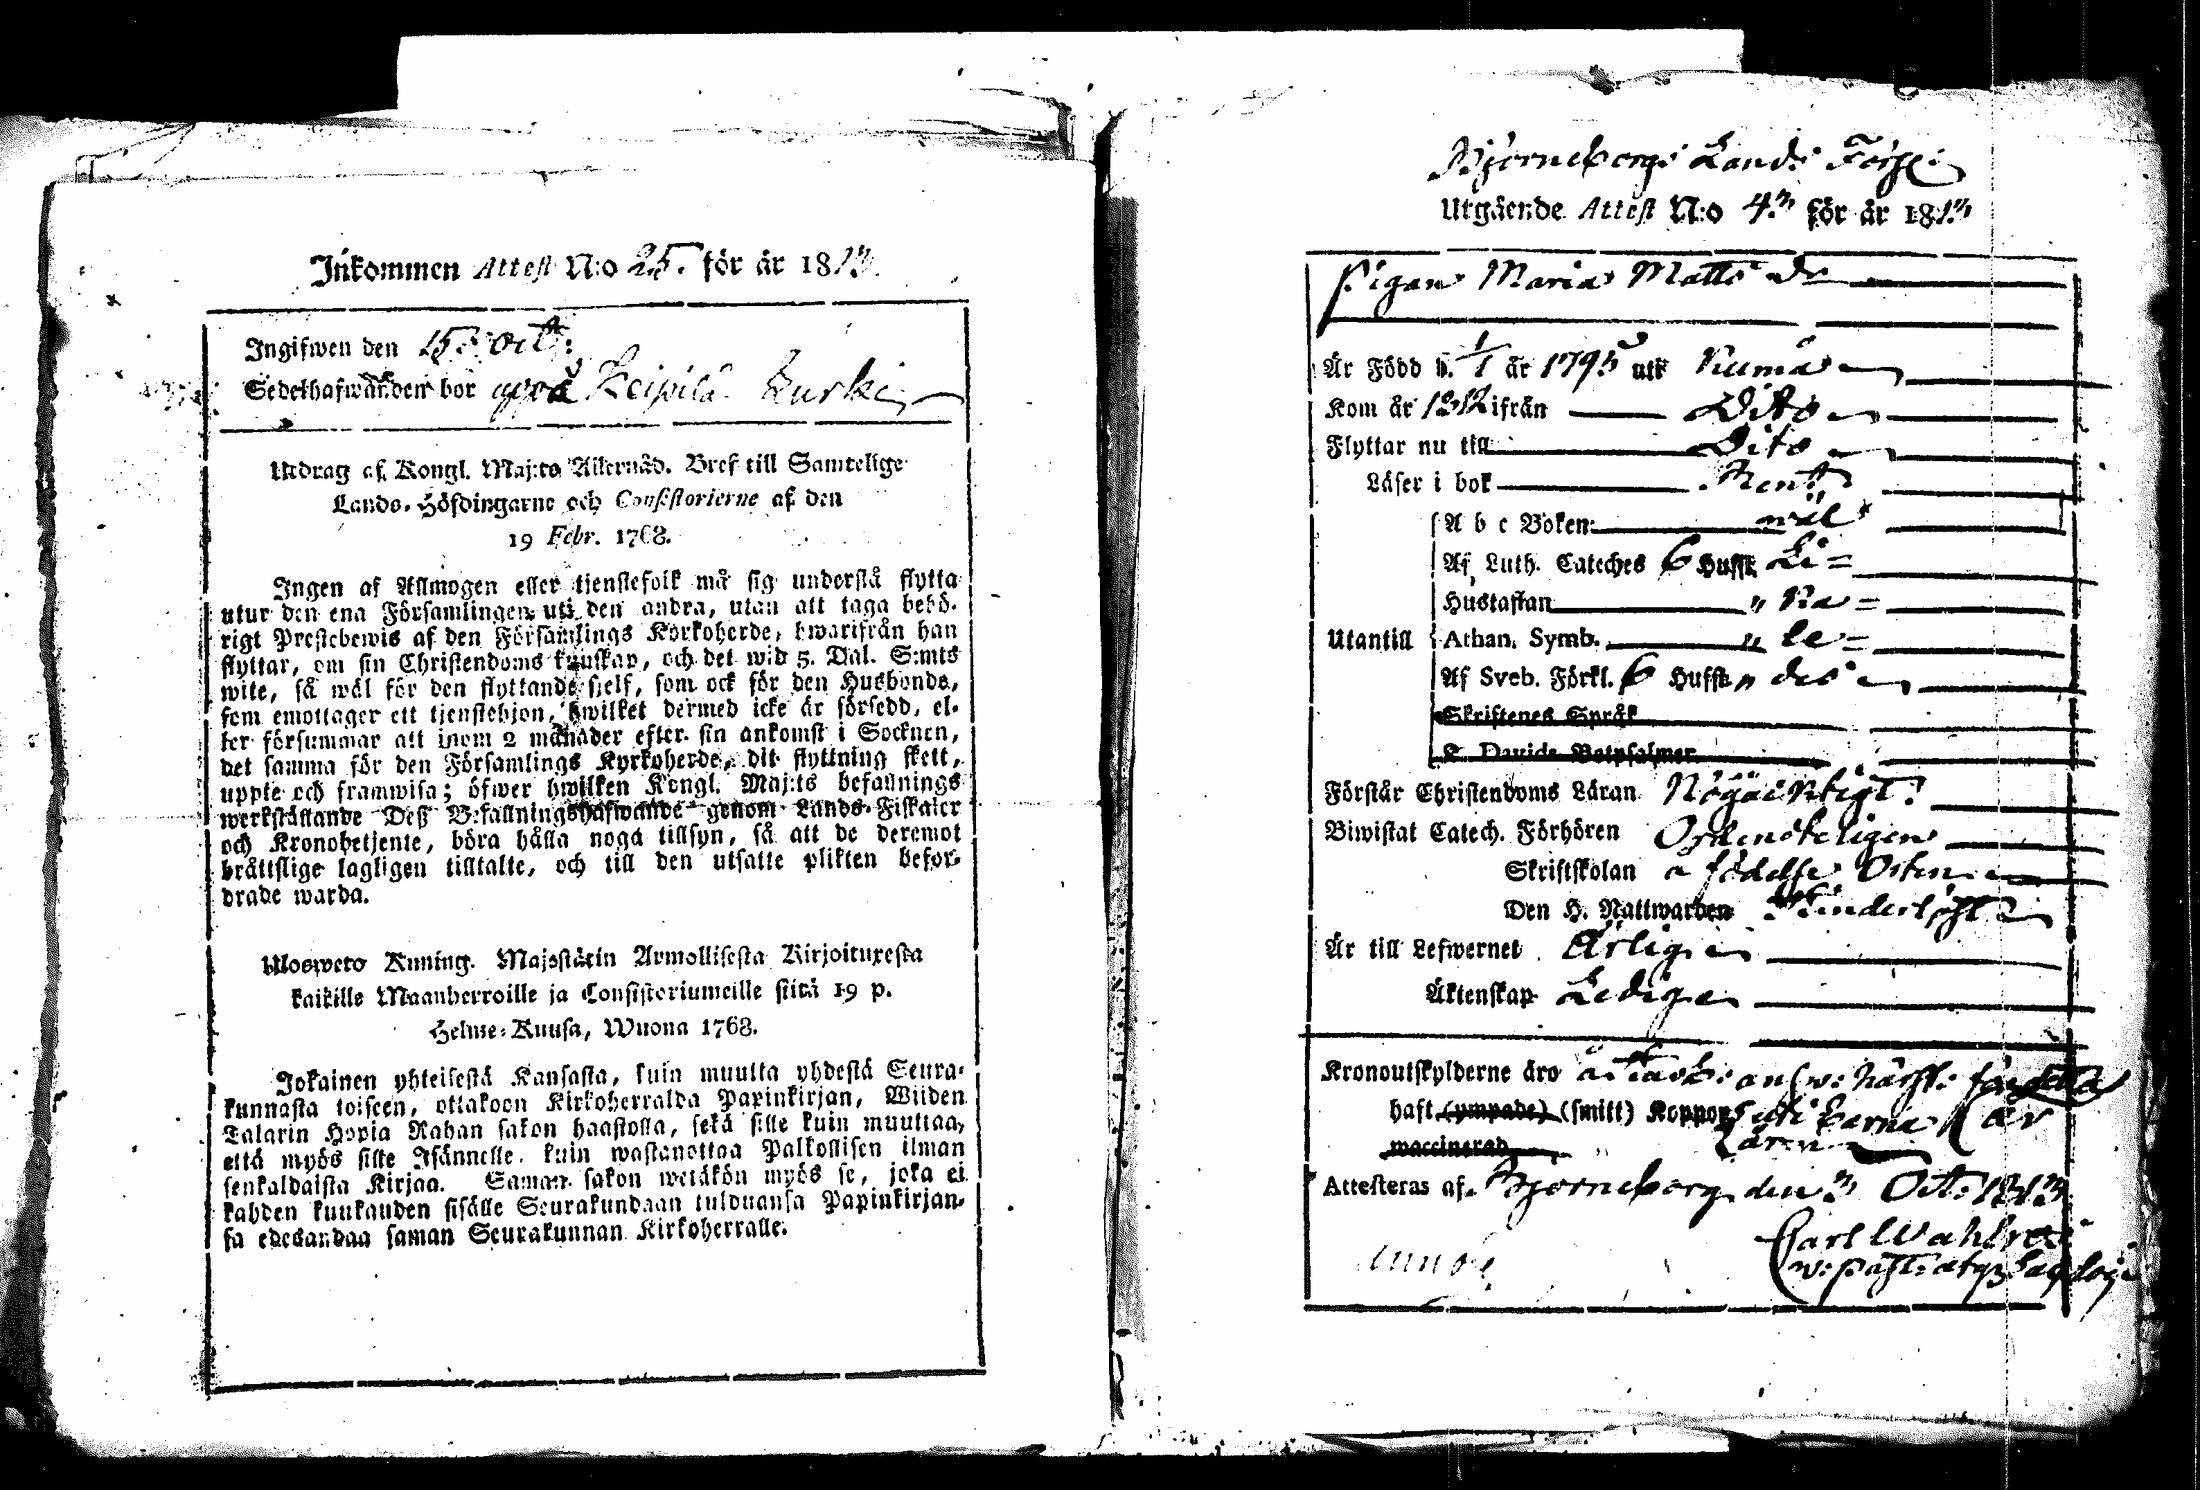 Inkommen Attest N:o 25. för år 1813.
Ingifwen den 15. Oct:
Sedelhafwanden bor uppå Keipilä Kurki
Utdrag af Kongl. Maj:ts Allernåd. Bref till Samtelige
Lands-Höfdingarne och Consistorierne af den
19 Febr. 1768.
Ingen af Allmogen eller tjenstefolk må sig understå flytta
utur den ena Församlingen uti den andra, utan att taga behö-
rigt Prestebewis af den Församlings Kyrkoherde, hwarifrån han
flyttar, om sin Christendoms kunskap, och det wid 5. Dal. S:mts
wite, så wäl för den flyttande sjelf, som ock för den Husbonde,
som emottager ett tjenstehjon, hwilket dermed icke är försedd, el-
ler försummar att inom 2 månader efter sin ankomst i Socknen,
det samma för den Församlings Kyrkoherde, dit flyttning skett,
uppte och framwisa; öfwer hwilken Kongl. Maj:ts befallnings
werkställande Deß Befallningshafwande genom Lands-Fiskaler
och Kronobetjente, böra hålla noga tillsyn, så att de deremot
bråttslige lagligen tilltalte, och till den utsatte plikten befor-
drade warda.
Ulosweto Kuning. Majestätin Armollisesta Kirjoituxesta
kaikille Maanherroille ja Consistoriumeille siitä 19 p.
Helme-Kuusa, Wuona 1768.
Jokainen yhteisestä Kansasta, kuin muutta yhdestä Seura-
kunnasta toiseen, ottakoon Kirkoherralda Papinkirjan, Wiiden
Talarin Hopia Rahan sakon haastolla, sekä sille kuin muuttaa,
että myös sille Isännelle, kuin wastanottaa Palkollisen ilman
senkaldaista Kirjaa. Saman sakon wetäkön myös se, joka ei
kahden kuukauden sisälle Seurakundaan tulduansa Papinkirjan-
sa edesandaa saman Seurakunnan Kirkoherralle.
Björneborgs Lands Förs:
Utgående Attest N:o 43 för år 1813
Pigan Maria Matts dr
Är Född d. 1/1 år 1795 uti Kumå
Kom år 1812 ifrån Dito
Flyttar nu till Dito
Läser i bok Rent
A b c Boken wäl
Af Luth. Cateches 6 Hufst. Li=
Hustaflan " ka=
Utantill Athan. Symb. " le=
Af Sveb. Förkl. 6 Hufst. " des
Skriftenes Språk
K. Davids Botpsalmer
Förstår Christendoms Läran Nögacktigt
Biwistat Catech. Förhören Ordenteligen
Skriftskolan a födelse Orten
Den H. Nattwarden
Är till Lefwernet Ärlig
Äktenskap Ledig
Kronoutskylderne äro
haft (ympade) (smitt) Koppor
waccinerad
Attesteras af Björneborg den 3 Oct: 1813
Carl